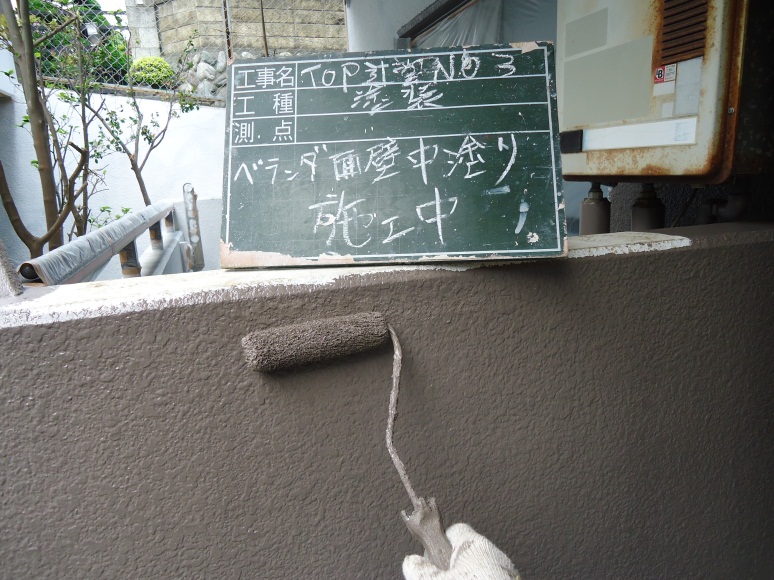 工事名 TOP計画NO3
工種 塗装
測点
ベランダ面壁中塗り
施工中